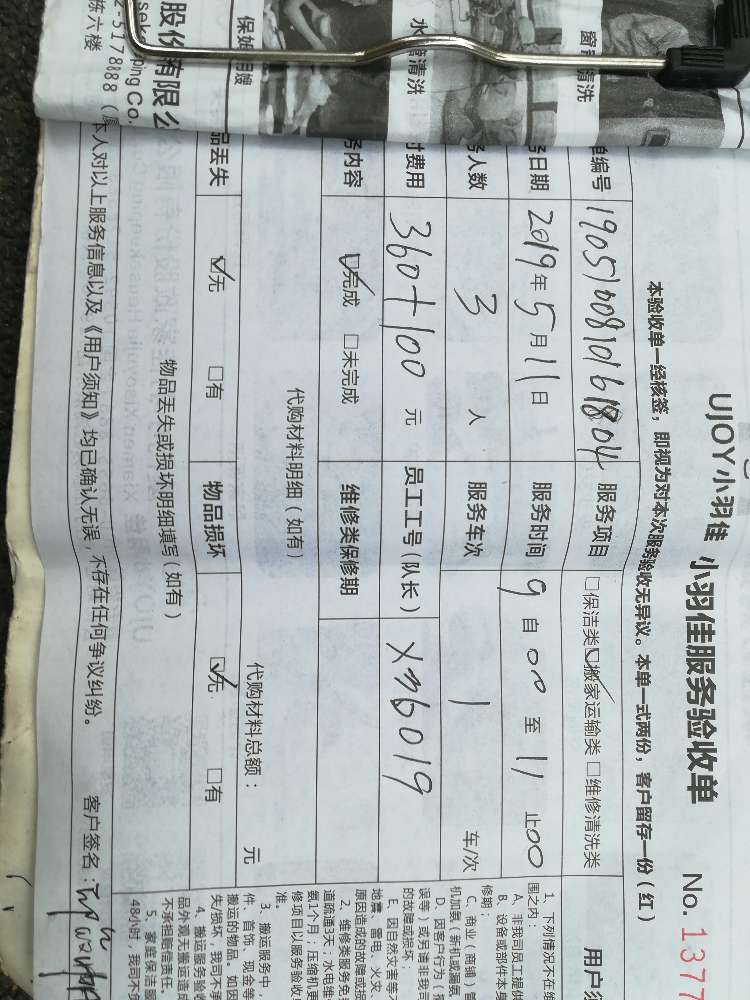 UJOY小羽佳 小羽佳服务验收单 No. 1377
本验收单一经核签，即视为对本次服务验收无异议。本单一式两份，客户留存一份（红）
单编号 1905100810161804 服务项目 □保洁类 ☑搬家运输类 □维修清洗类
务日期 2019年5月11日 服务时间 9自00至11止00
务人数 3 人 服务车次 1 车/次
付费用 360+100 元 员工工号（队长） XM6019
务内容 ☑完成 □未完成 维修类保修期
代购材料明细（如有） 代购材料总额： 元
品丢失 ☑无 □有 物品损坏 ☑无 □有
物品丢失或损坏明细填写（如有）
本人对以上服务信息以及《用户须知》均已确认无误，不存在任何争议纠纷。 客户签名：
用户须
1、下列情况不在维
围之内：
A、非我司员工提供
B、设备或部件本身
修期；
C、商业（商铺）管
机加氨（新机或漏氨
D、因客户行为（擅
误等）或另请非我司
的故障或损坏；
E、因自然灾害等不
地震、雷电、火灾、
原因造成的故障或损
2、维修类服务免
道疏通3天；水电维
氨1个月；压缩机更
修项目以服务验收
准。
3、搬运服务中，
件、首饰、现金等
搬运的物品。如因
失/损坏，我司不承
4、搬运服务验收
品外观无搬运造成
不承担赔偿责任。
5、家庭保洁服
48小时，我司不负
窗帘清洗
水箱清洗
保姆月嫂
股份有限公
sekeeping Co.
2-5178888
栋六楼